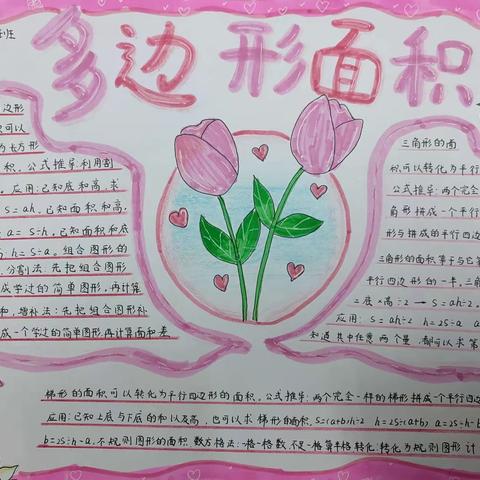 多边形面积
边形
可以
为长方形
积。公式推导利用割
应用:已知底和高,求
S=ah,已知面积和高,
a=S÷h,已知面积和底
h=S÷a。组合图形的
分割法:先把组合图形
成学过的简单图形,再计算
和,增补法:先把组合图形补
成一个学过的简单图形再计算面积差
三角形的面
积可以转化为平行
公式推导:两个完全
角形拼成一个平行
形与拼成的平行四边
三角形的面积等于与它等
平行四边形的一半,三角
=底×高÷2→S=ah÷2
应用:S=ah÷2 h=2S÷a a
知道其中任意两个量,都可以求第
梯形的面积可以转化为平行四边形的面积。公式推导:两个完全一样的梯形拼成一个平行四边
应用:已知上底与下底的和以及高,也可以求梯形的面积,S=(a+b)h÷2 h=2S÷(a+b) a=2S÷h-b
b=2S÷h-a,不规则图形的面积 数方格法:一格一格数,不足一格算半格,转化:转化为规则图形计